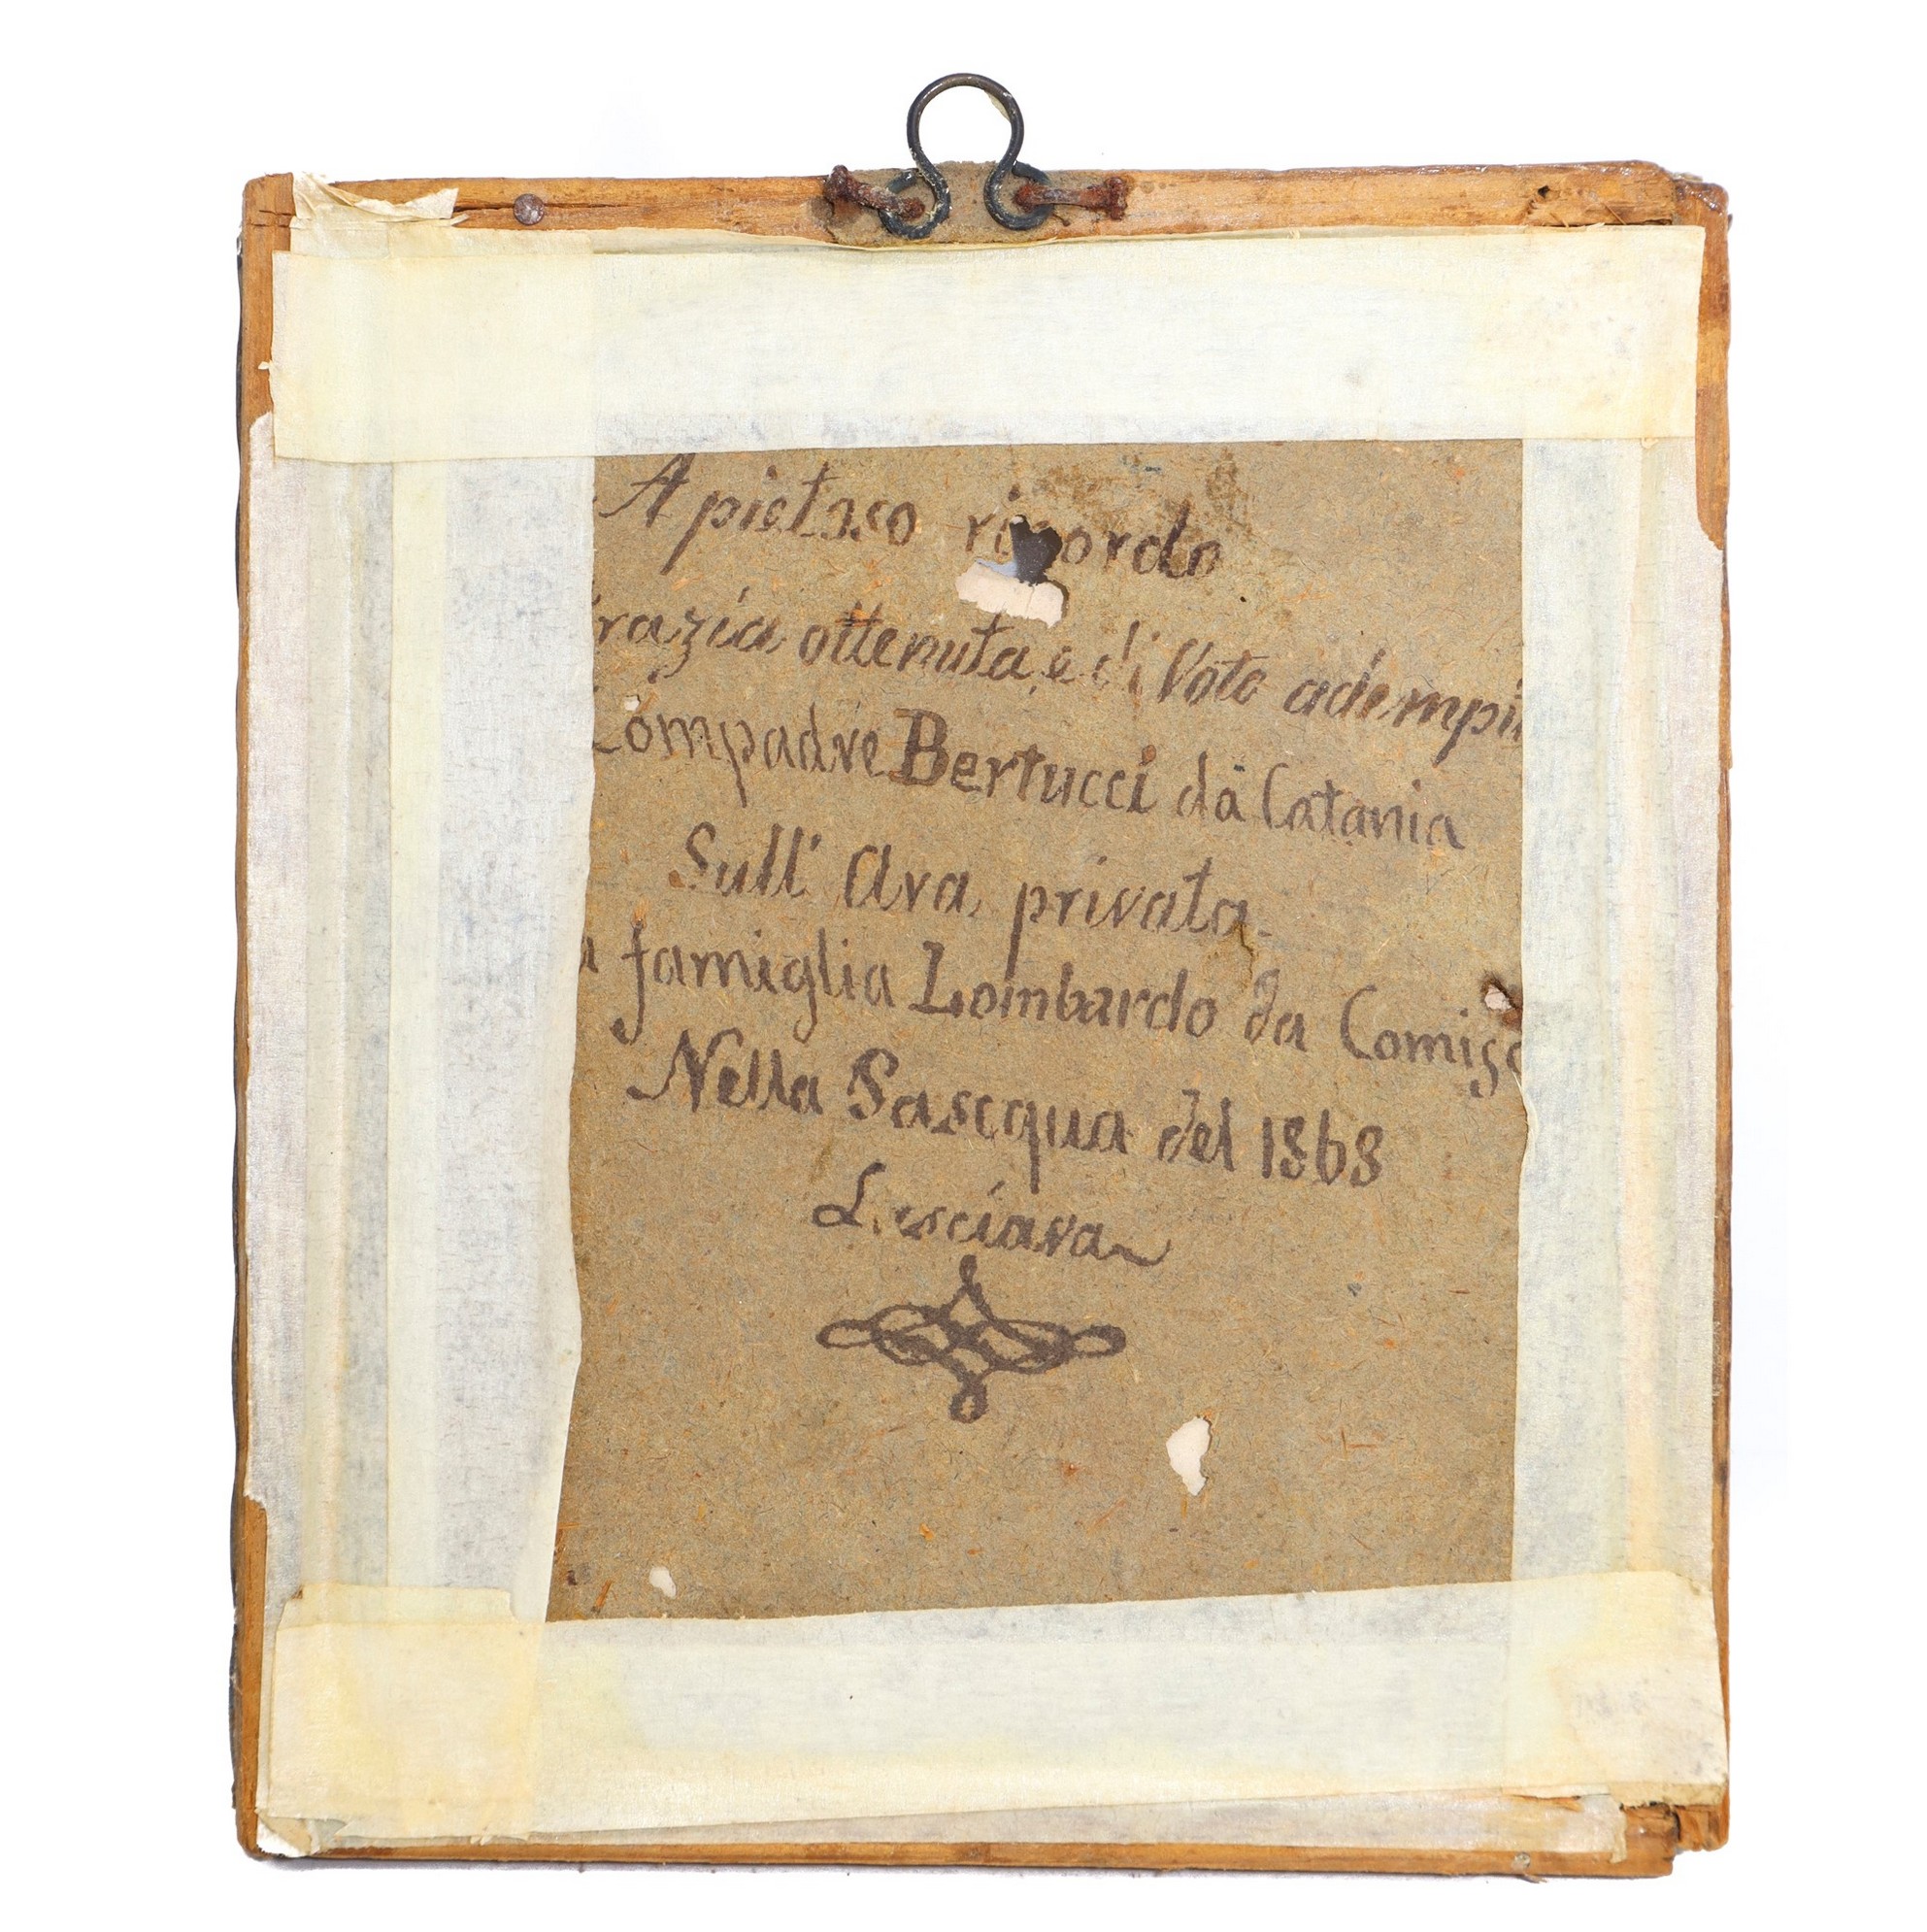 A pietoso ricordo
razia ottenuta, e di Voto adempiu
Compadre Bertucci da Catania
Sull' Ara privata
a famiglia Lombardo da Comiso
Nella Pascqua del 1868